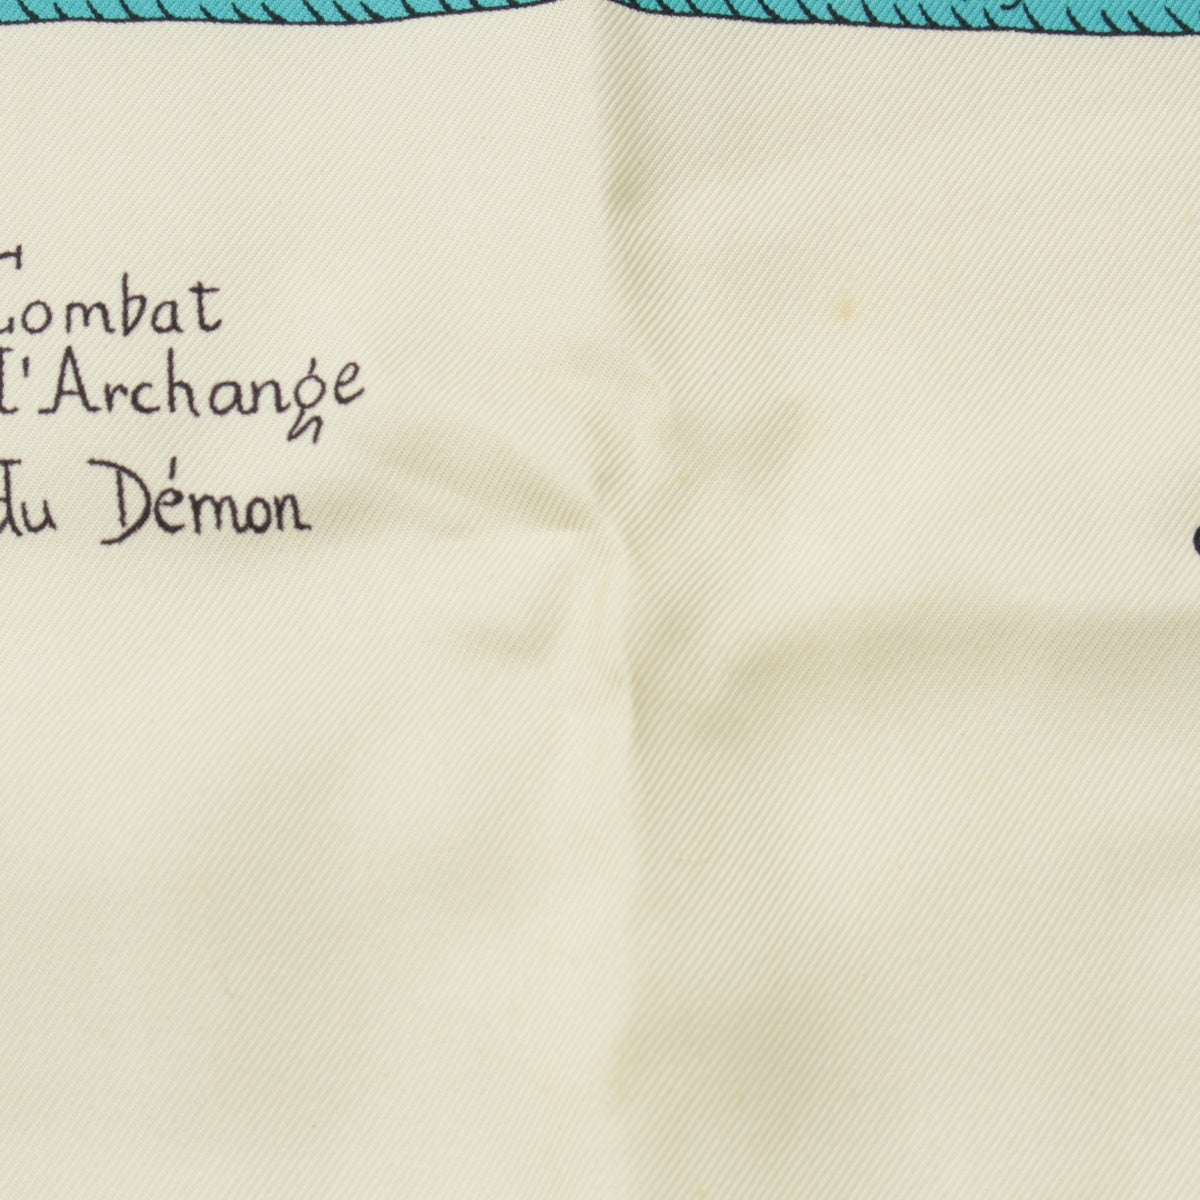 Combat
l'Archange
du Démon